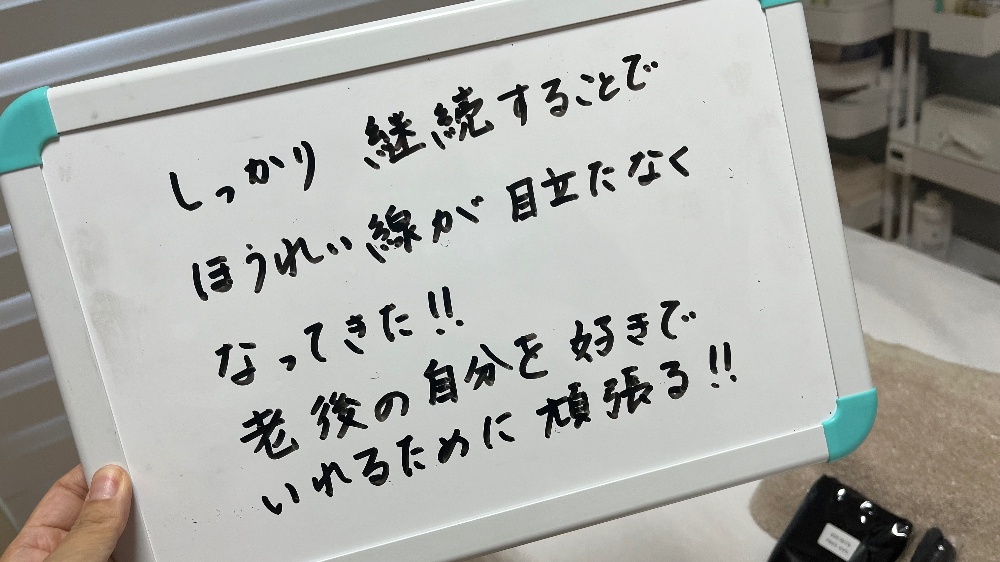 しっかり 継続することで
ほうれい線が目立たなく
なってきた!!
老後の自分を好きで
いれるために頑張る!!